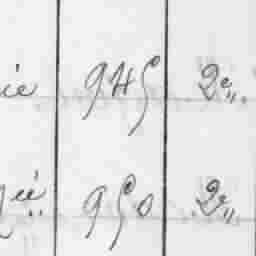 ie 945 2e„
ié 950 2e„